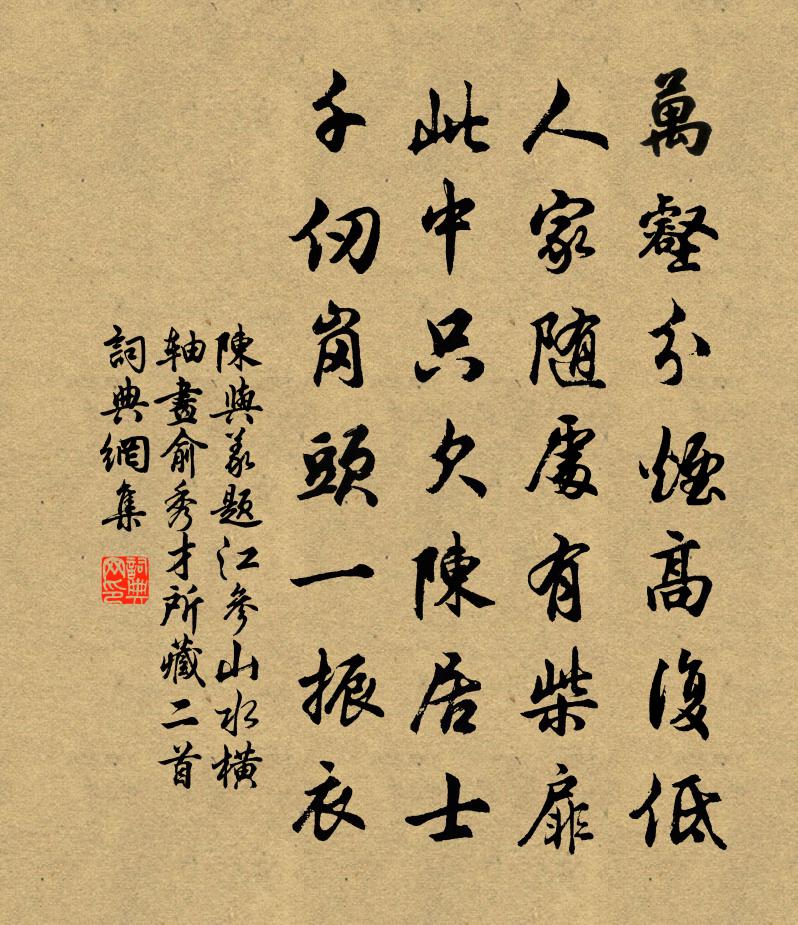 萬壑分煙高復低
人家随處有柴扉
此中只欠陳居士
千仞崗頭一振衣
陳與義題江參山水橫
軸畫俞秀才所藏二首
詞典網集
詞典
网印